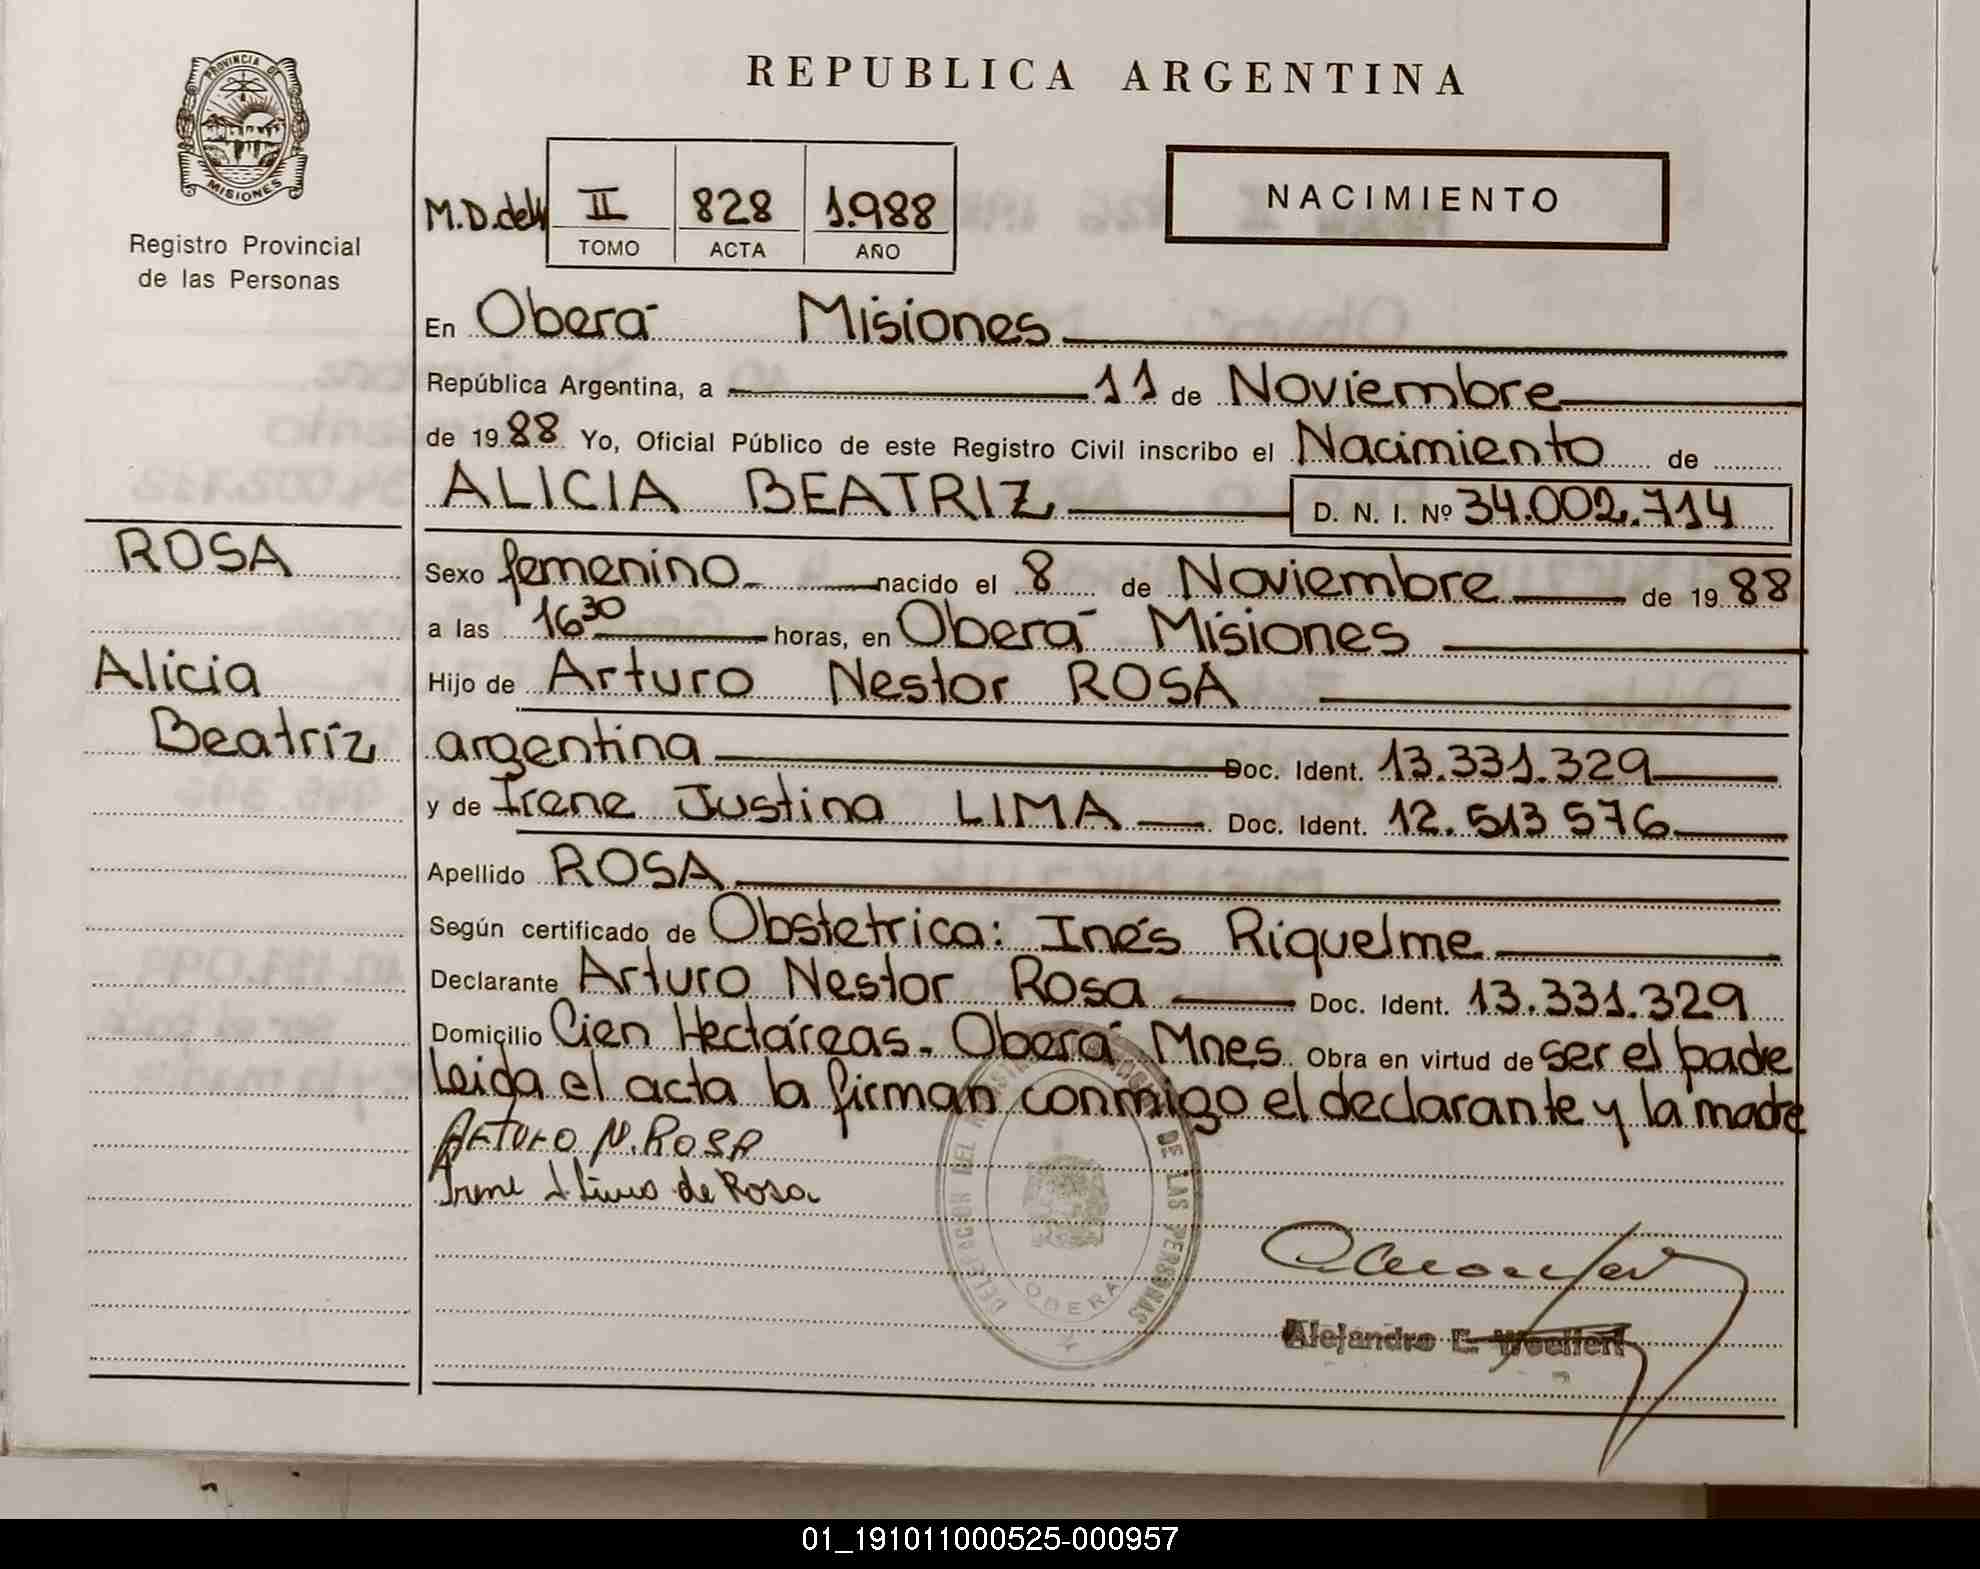 PROVINCIA DE
MISIONES
Registro Provincial
de las Personas
REPUBLICA ARGENTINA
M.D.del
II 828 1.988
TOMO ACTA AÑO
NACIMIENTO
En Oberá Misiones
República Argentina, a 11 de Noviembre
de 1988 Yo, Oficial Público de este Registro Civil inscribo el Nacimiento de
ALICIA BEATRIZ D. N. I. Nº 34.002.714
ROSA
Alicia
Beatríz
Sexo femenino nacido el 8 de Noviembre de 1988
a las 16 30 horas, en Oberá Misiones
Hijo de Arturo Nestor ROSA
argentina Doc. Ident. 13.331.329
y de Irene Justina LIMA Doc. Ident. 12.513 576
Apellido ROSA
Según certificado de Obstetrica: Inés Riquelme
Declarante Arturo Nestor Rosa Doc. Ident. 13.331.329
Domicilio Cien Hectáreas. Oberá Mnes Obra en virtud de ser el padre
Leida el acta la firman conmigo el declarante y la madre
Arturo N. ROSA
Irene de Rosa
DELEGACION DEL DE LAS PERSONAS
OBERA
Alejandro E.
01_191011000525-000957